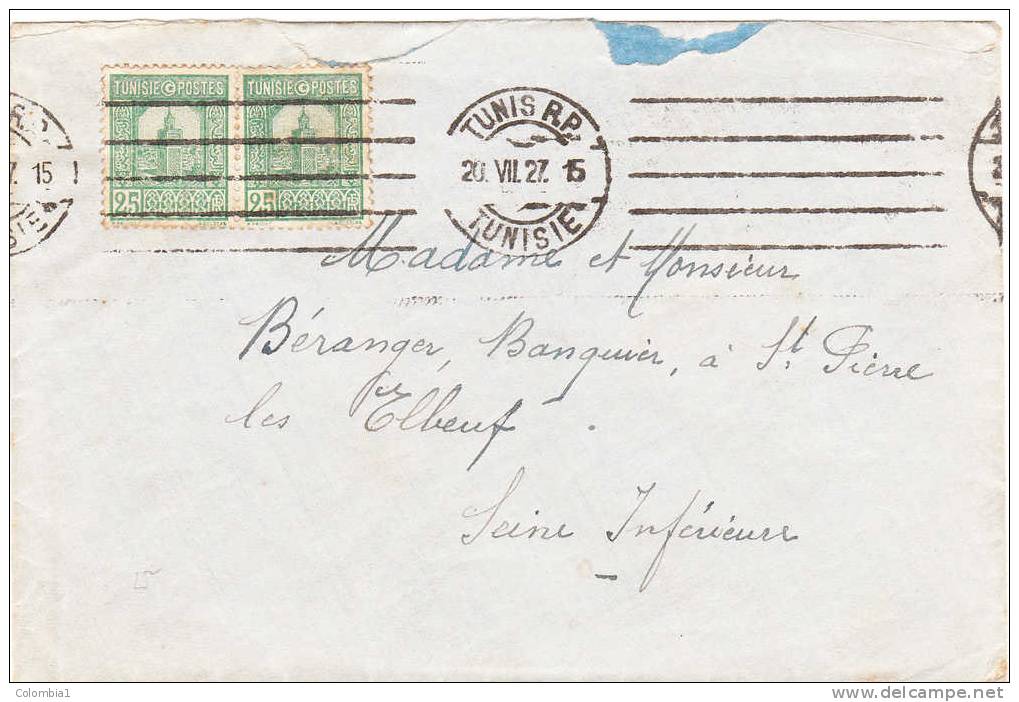 TUNISIE POSTES TUNISIE POSTES
25 25
R.P.
7. 15
TUNIS R.P.
20. VII. 27. 15
TUNISIE
Madame et Monsieur
Béranger, Banquier, à St. Pierre
les Elbeuf.
Seine Inférieure
Colombia1
delcampe.net